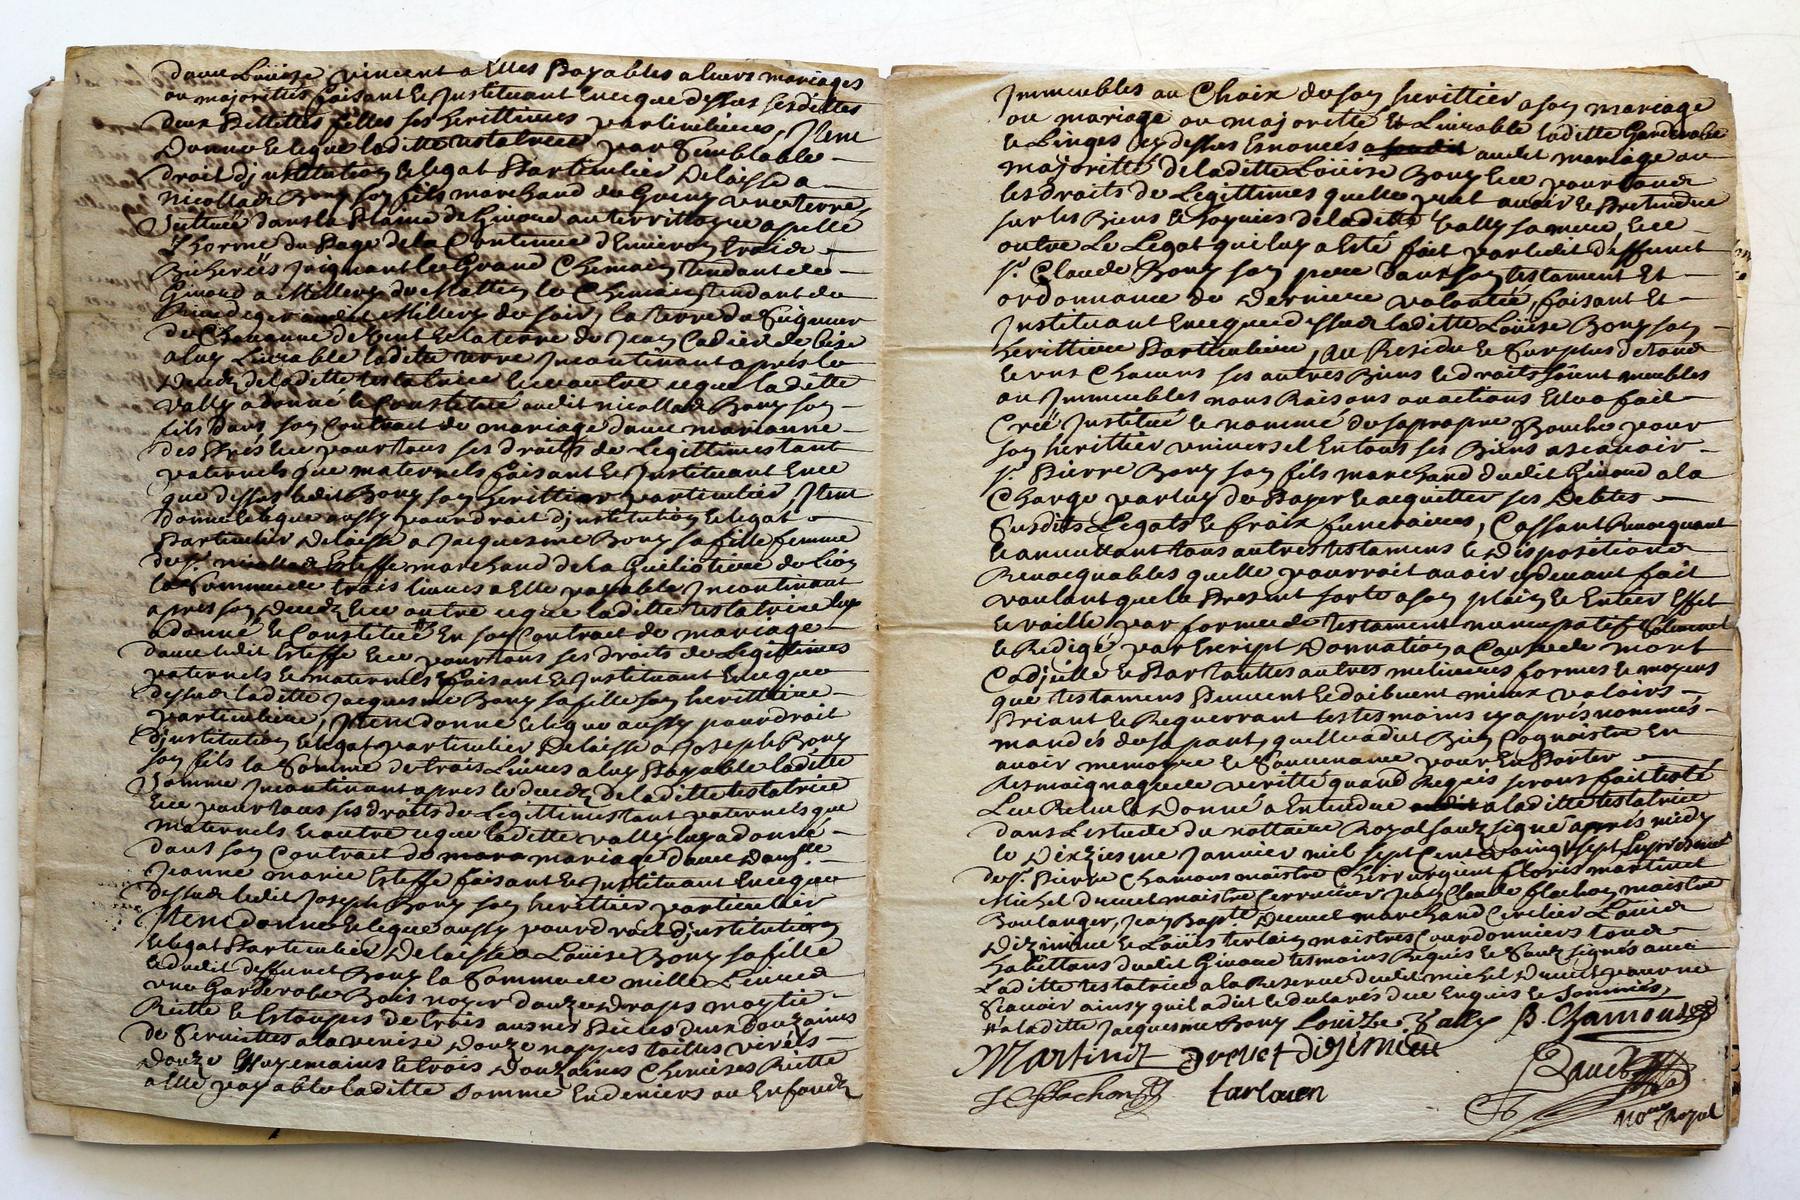 dame Loüize vincent a Elles Payables a leurs mariages
ou majorittés faisant & Justituant Enceque dessus sesdittes
deux Pettittes filles ses herittieres particulieres, Item
donne & legue laditte testatrice par Semblable
droit djnstitution & legat Particulier Delaisse a
nicollas Bony son fils marchand de une terre
Scittuée dans la Plaine de Givord au territtoyre apellé
L'horme du Page de la Continue d'Environ trois
Bicherées joignant le Grand Chemain tendant de
Givord a Millery de Mattin le Chemain tendant de
Millery de soir, la terre du Seigneur
de de Vent & la terre de Jean Cadier de bise
a luy Livrable laditte terre Jncontinant apres le
Decedz de laditte testatrice & ce outre ceque laditte
Vally a donné & Constitué audit nicollas Bony son
fils dans son Contract de mariage avec marianne
des & ce pour tous ses droits de Legittimes tant
paternels que maternels faisant & Justituant Ence
que dessus ledit Bony son herittier particulier, Item
donne & legue aussy pour droit djnstitution & legat
Particulier Delaisse a Jacquesme Bony sa fille femme
de sr. nicollas Esteffe marchand de la Guillotiere de Lion
la Somme de trois livres a Elle payable Jncontinant
apres son Decedz & ce outre ceque laditte testatrice luy
a donné & Constitué En son Contract de mariage
avec ledit Esteffe & ce pour tous ses droits de Legittimes
paternels & maternels faisant & Justituant Enceque
dessus laditte Jacquesme Bony sa fille son herittiere
particuliere, Item donne & legue aussy pour droit
djnstitution & legat particulier Delaisse a Joseph Bony
son fils la Somme de trois Livres a luy Payable laditte
Somme Jncontinant apres le decedz de laditte testatrice
& ce pour tous ses droits de Legittimes tant paternels que
maternels & outre ceque laditte vally luy a donné
dans son Contract de mariage avec
Jeanne marie Esteffe faisant & Justituant Enceque
dessus ledit Joseph Bony son herittier particulier
Item donne & legue aussy pour droit djnstitution
& legat Particulier Delaisse a Loüise Bony sa fille
& dudit deffunct Bony la Somme de mille Livres
une Garderobe Bois noyer douze Draps moytié
Ritte & Estoupes de trois aunes Pieces deux douzaines
de Serviettes a la venise Douze nappes
Douze Essuyemains & trois Douzaines Chemises Ritte
a Elle payable laditte Somme En deniers ou En fondz
Jmmeubles au Choix de son herittier a son mariage
ou mariage ou majoritté & Livrable laditte Garderobe
& Linges cy dessus Enoncés audit mariage ou
majoritté de laditte Loüise Bony & ce pour tous
les droits de Legittimes quelle peut avoir & Pretendre
sur les Biens & hoyries de laditte Vally sa mere, & ce
outre Le Legat qui luy a Esté fait par ledit deffunct
sr. Claude Bony son pere dans son testament Et
ordonnance de Derniere volontée, faisant Et
Justituant Enceque dessus laditte Loüise Bony son
herittiere Particuliere, Au Residu & Surplus de tous
& uns Chacuns ses autres Biens & droits soient meubles
ou Jmmeubles noms Raisons ou actions Elle a fait
Créé Justitué & nommé de sa propre Bouche pour
son herittier universel En tous ses Biens a scavoir
sr. Pierre Bony son fils marchand dudit Givord a la
Charge par luy de Payer & acquitter ses Debtes
Susdits Legats & fraix funeraires, Cassant Revocquant
& annullant tous autres testamens & dispositions
Revocquables quelle pourrait avoir cy devant fait
voulant que le Present sorte a son plain & Entier Effet
& vaille par forme de testament nuncupatif Solemnel
& Redigé par Escript Donnation a Cause de mort
Codjcille & Par touttes autres meliieures formes & moyens
que testamens Peuvent & doibvent mieux valoirs
Priant & Requerrant les tesmoins cy apres nommés
mandés de sa part, quelle a dit Bien Cognoistre En
avoir memoyre & Souvenance pour En Porter
tesmoignage de veritté quand Requis seront fait
Leu Releu & Donné a Entendre a laditte testatrice
dans Lestude du nottaire Royal souzsigné apres midy
le Dixziesme Janvier mil sept Cent vaingt sept En presence
de sr. Pierre Chamous maistre Chirurgient floris martinet
Michel Drevet maistre Cerrurier Jean Claude flachon maistre
Boulanger, Jean Bapte. marchand Loüis
Dizimieu & Loüis terlain maistres Courdonniers tous
habittans dudit Givord tesmoins Requis & Souzsignés avec
Laditte testatrice a la Reserve dudit michel Drevet pour ne
Scavoir ainsy quil a dit & declaré de ce Enquis & sommés,
& laditte Jacquesme Bony Louize Vally P. Chamous
Martinet Drevet dizimieu
J C flachon tarlouen
Royal